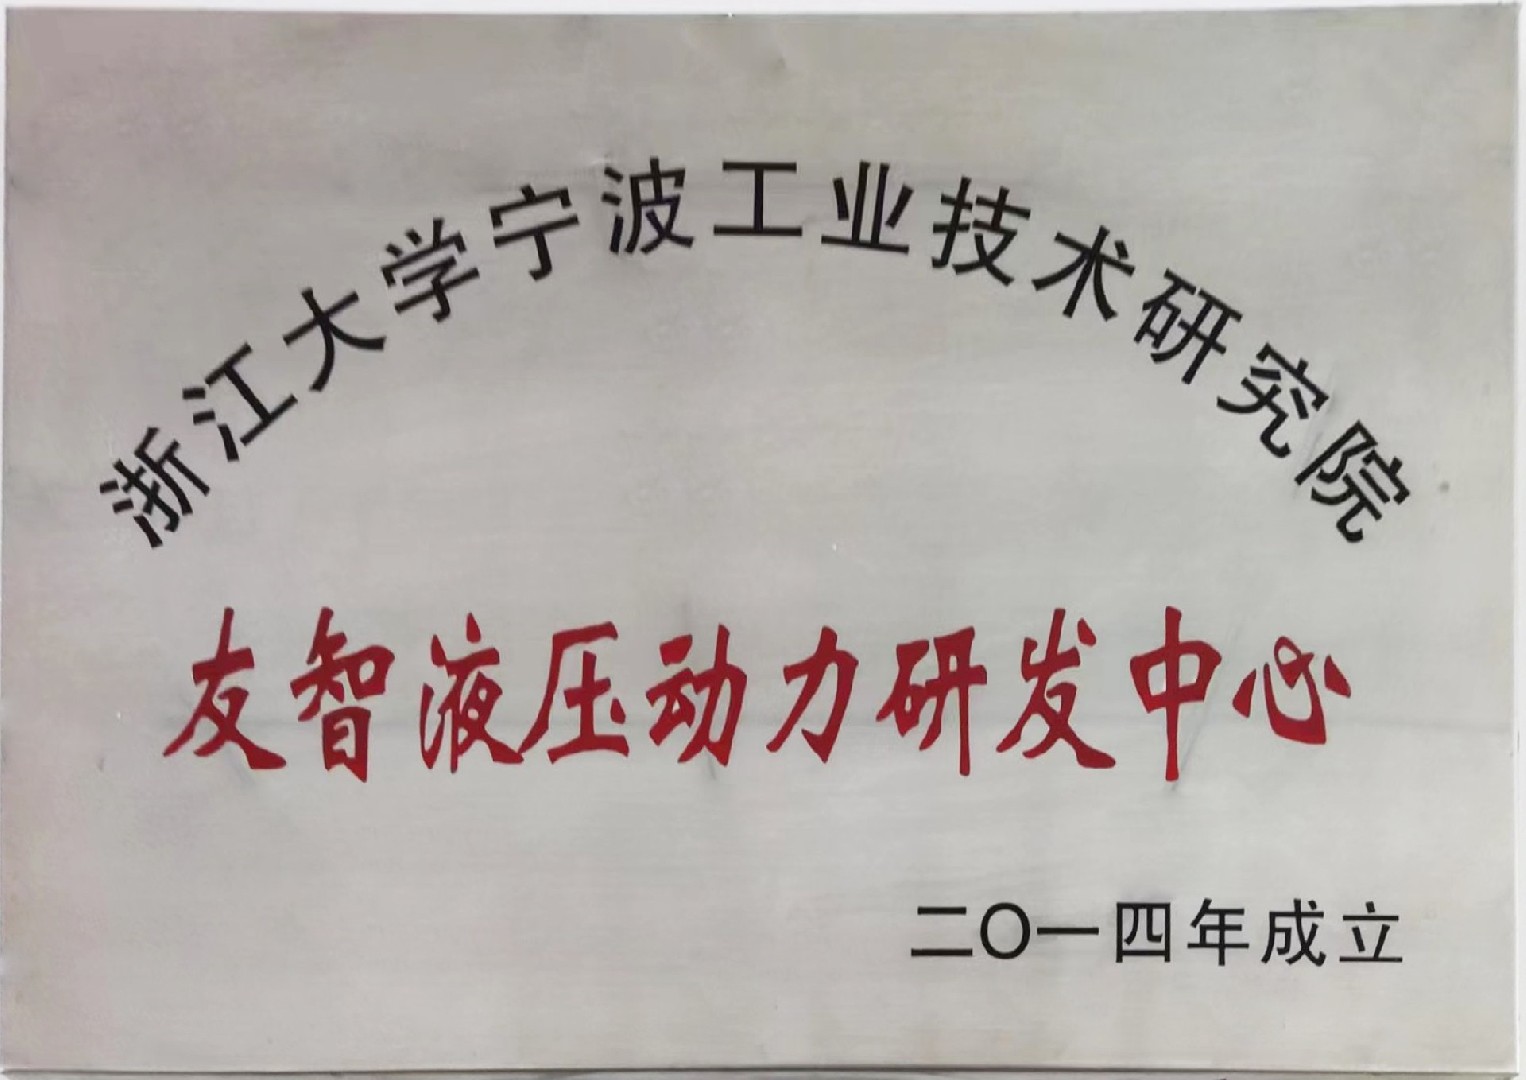 浙江大学宁波工业技术研究院
友智液压动力研发中心
二〇一四年成立